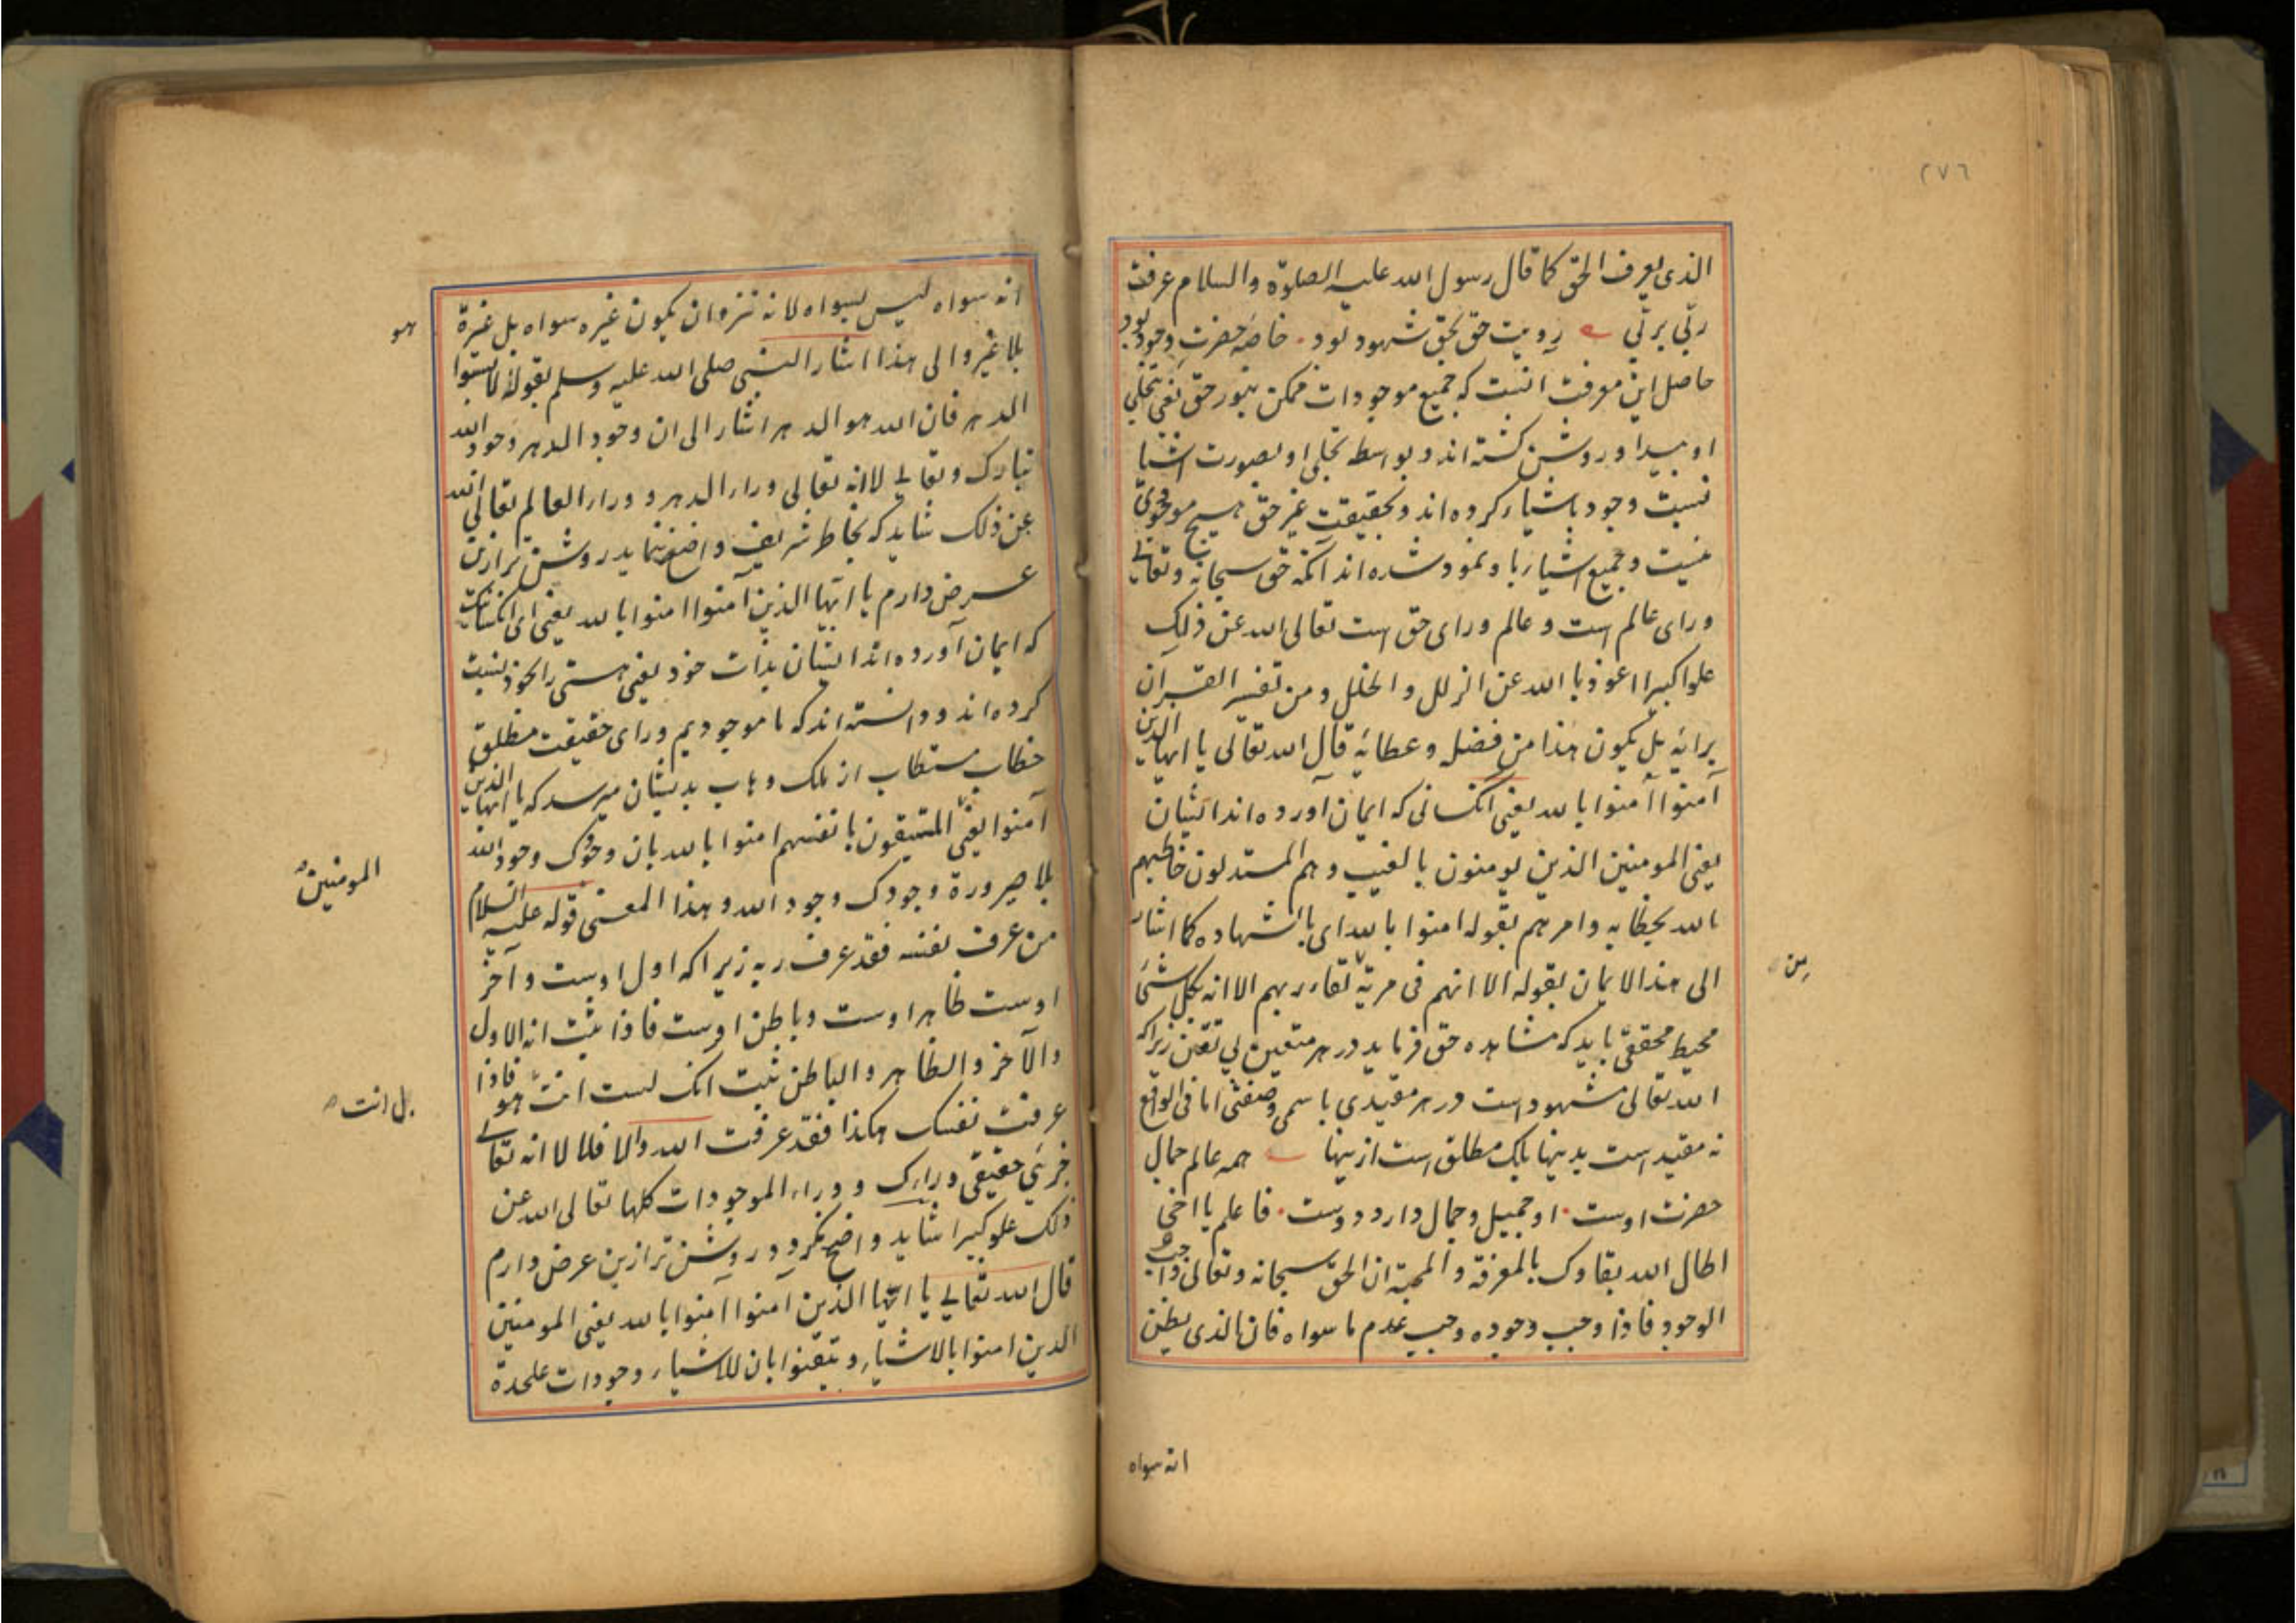 ٢٧٦
الذی یعرف الحق کما قال رسول الله علیه الصلوة والسلام عرفت
ربّی بربّی رویت حق بحق شهود بود خاصه حضرت وجود بود
حاصل این معرفت آنست که جمیع موجودات ممکن بنور حق یعنی بتجلی
او پیدا و روشن کشته اند و بواسطه تجلی او بصورت اشیا
نسبت وجود باشیاء کرده اند و بحقیقت غیر حق هیچ موجودی
نیست و جمیع اشیاء باو نمود شده اند آنکه حق سبحانه وتعالے
ورای عالم است و عالم ورای حق است تعالی الله عن ذلک
علوا کبیرا اعوذ با الله عن الزلل والخلل ومن تفسیر القران
برائه بل یکون هذا من فضله وعطائه قال الله تعالی یا ایها الذین
آمنوا آمنوا بالله یعنی آنکسانی که ایمان آورده اند ایشان
یعنی المومنین الذین یومنون بالغیب وهم المستدلون خاطبهم
الله بخطابه وامرهم بقوله امنوا بالله ای بالشهاده کما اشار
الی هذا الایمان بقوله الا انهم فی مریة لقاء ربهم الا انه بکل شئ
من
محیط محققی باید که مشاهده حق فرماید در هر متعین بی تعین زیراکه
الله تعالی مشهود است در هر مقیدی باسمی وصفتی اما فی الواقع
نه مقید است بدینها بلک مطلق است ازینها همه عالم جمال
حضرت اوست او جمیل و جمال دارد دوست فاعلم یا اخی
اطال الله بقاوک بالمعرفة والمحبة ان الحق سبحانه وتعالی واجب
الوجود فاذا وجب وجوده وجب عدم ما سواه فان الذی یظن
انه سواه
انه سواه لیس بسواه لانه تنزه ان یکون غیره سواه بل غیرة
هو
بلا غیر والی هذا اشار النبی صلی الله علیه وسلم بقوله لا تسبوا
الدهر فان الله هو الدهر اشار الی ان وجود الدهر وجود الله
تبارک وتعالے لا انه تعالی وراء الدهر و وراء العالم تعالی الله
عن ذلک شاید که بخاطر شریف واضح ننماید روشن تر ازین
عرض دارم یا ایها الذین آمنوا امنوا بالله یعنی ای آنکسانیت
که ایمان آورده اند ایشان بذات خود یعنی هستی را بخود نسبت
کرده اند و دانسته اند که ما موجودیم ورای حقیقت مطلق
خطاب مستطاب از ملک وهاب بدیشان میرسد که یا ایها الذین
آمنوا یعنی المتیقنون بانفسهم امنوا بالله بان وجودک وجود الله
المومنین
بلا صیرورة وجودک وجود الله وهذا المعنی قوله علیه السلام
من عرف نفسه فقد عرف ربه زیرا که اول اوست و آخر
اوست ظاهر اوست و باطن اوست فاذا ثبت انه الاول
والآخر والظاهر والباطن ثبت انک لست انت هو فاذا
بل انت
عرفت نفسک هکذا فقد عرفت الله والا فلا لا انه تعالے
جزئی حقیقی وراءک و وراء الموجودات کلها تعالی الله عن
ذلک علو کبیرا شاید واضح نگردد و روشن تر ازین عرض دارم
قال الله تعالے یا ایها الذین آمنوا آمنوا بالله یعنی المومنین
الذین امنوا بالاشیاء و تیقنوا بان للاشیاء وجودات علحدة